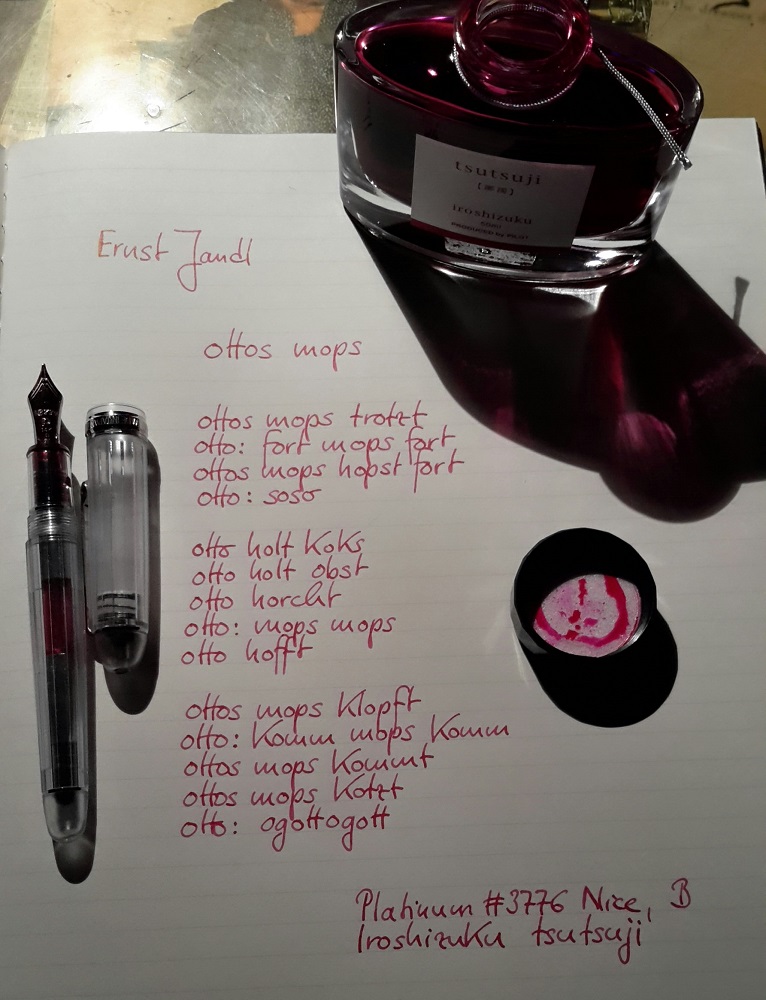 tsutsuji
iroshizuku
Ernst Jandl
ottos mops
ottos mops trotzt
otto: fort mops fort
ottos mops hopst fort
otto: soso
otto holt koks
otto holt obst
otto horcht
otto: mops mops
otto hofft
ottos mops klopft
otto: komm mops komm
ottos mops kommt
ottos mops kotzt
otto: ogottogott
Platinum #3776 Nice, B
Iroshizuku tsutsuji